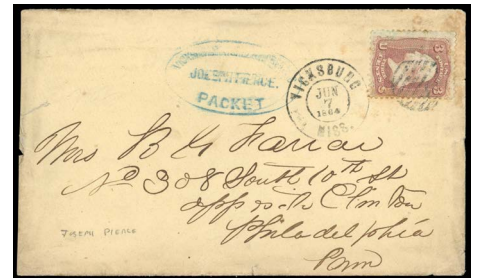 JOSEPH PIERCE.
PACKET
VICKSBURG
JUN
17
1864
MISS.
3 3
U S
Mrs B G Farrar
No 308 South 10th St
opposite Clinton
Philadelphia
Penn
JOSEPH PIERCE